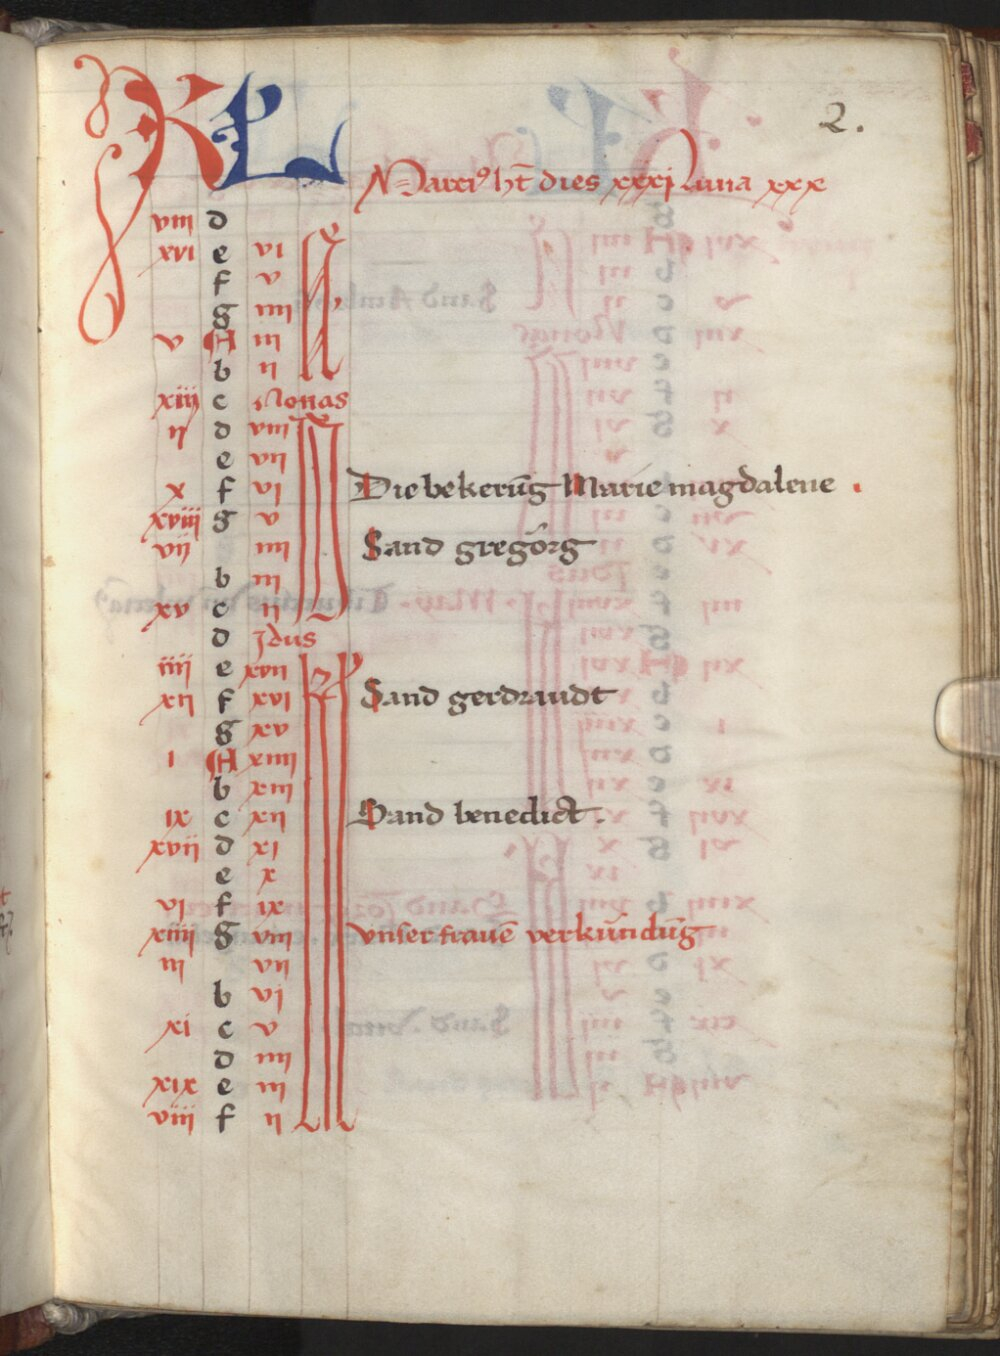 2.
KL
Marci⁹ ht̄ dies xxxi luna xxx
viii d
xvi e vi
f v
g iiii
v A iii
b ii
xiii c Nonas
ii d viii
e vii
x f vi Die bekerūg Marie magdalene .
xviii g v
vii iiii Sand gregorg
b iii
xv c ii
d Idus
iiii e xvii
xii f xvi Sand gerdraudt
g xv
i A xiiii
b xiii
ix c xii Sand benedict .
xvii d xi
e x
vi f ix
xiiii g viii vnser frauē verkūndūg
iii vii
b vi
xi c v
d iiii
xix e iii
viii f ii